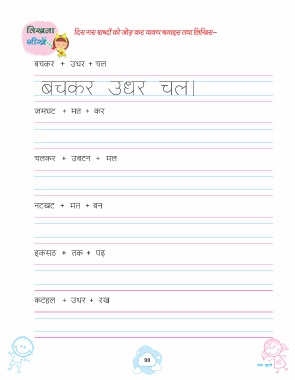 लिखना
सीखें
दिए गए शब्दों को जोड़ कर वाक्य बनाइए तथा लिखिए–
बचकर + उधर + चल
बचकर उधर चल।
जमघट + मत + कर
चलकर + उबटन + मल
नटखट + मत + बन
इकसठ + तक + पढ़
कटहल + उधर + रख
98